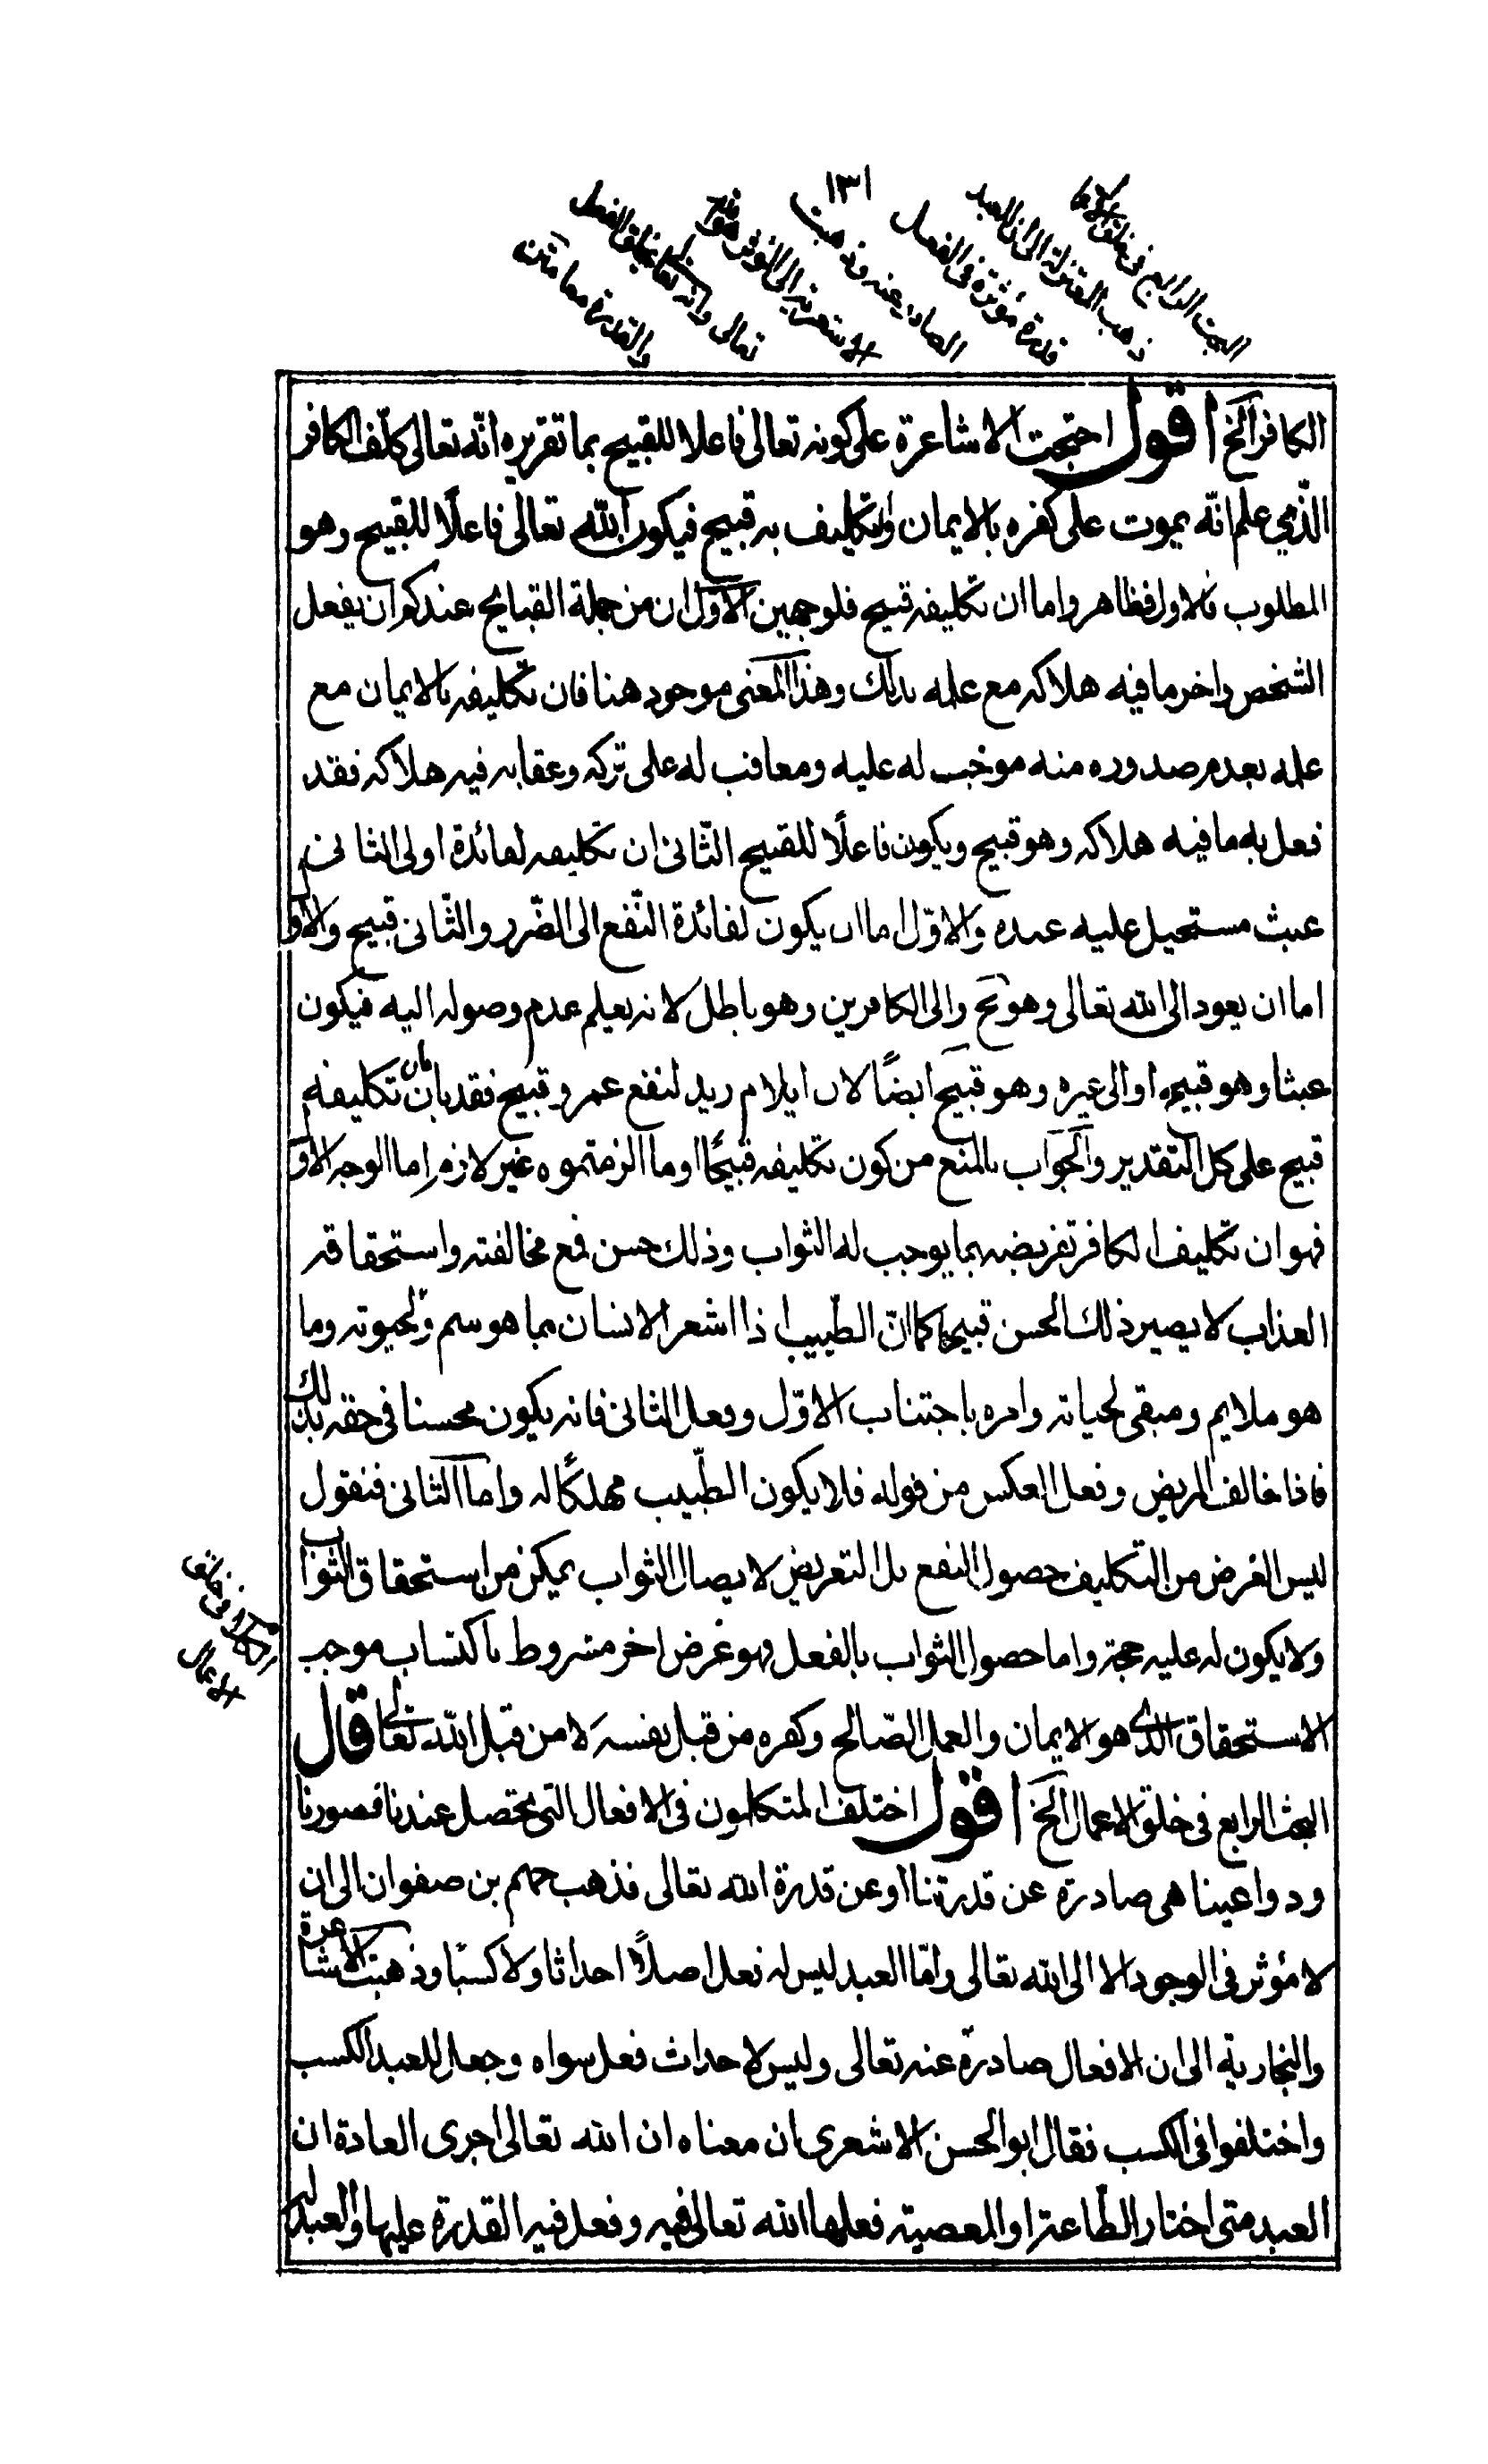 ١٣١
البحث الرابع في خلق الاعمال
ذهب المعتزلة الى ان العبد
قدرة مؤثرة في الفعل
الصادر عنه وذهبت
الاشعرية الى المؤثر هو الله
تعالى وانه تعالى يخلق الفعل
والقدرة معا مقترنة
الكافر الخ اقول احتجت الاشاعرة على كونه تعالى فاعلا للقبيح بما تقريره انّه تعالى كلّف الكافر
الذّي علم انّه يموت على كفره بالايمان والتكليف به قبيح فيكون الله تعالى فاعلًا للقبيح وهو
المطلوب فالاول فظاهر واما ان تكليفه قبيح فلوجهين الاوّل ان من جملة القبايح عندكم ان يفعل
الشخص باخر ما فيه هلاكه مع علمه بذلك وهذا المعنى موجود هنا فان تكليفه بالايمان مع
علمه بعدم صدوره منه موجب له عليه ومعاقب له على تركه وعقابه فيه هلاكه فقد
فعل به ما فيه هلاكه وهو قبيح ويكون فاعلًا للقبيح الثّانى ان تكليفه لفائدة اولى الثانى
عبث مستحيل عليه عنده والاوّل اما ان يكون لفائدة النّفع الى الضّرر والثّانى قبيح والاول
اما ان يعود الى الله تعالى وهو مح والى الكافرين وهو باطل لانه يعلم عدم وصوله اليه فيكون
عبثا وهو قبيح او الى غيره وهو قبيح ايضًا لان ايلام زيد لنفع عمرو قبيح فقد بان بان تكليفه
قبيح على كل التقدير والجواب بالمنع من كون تكليفه قبيحًا وما الزمتموه غير لازم اما الوجه الاول
فهو ان تكليف الكافر تعريضه بما يوجب له الثواب وذلك حسن فمع مخالفته واستحقاقه
العذاب لا يصير ذلك الحسن قبيحا كما انّ الطّبيب اذا اشعر الانسان بما هو سم لحيوته وما
هو ملايم ومبقى لحياته وامره باجتناب الاوّل وفعل الثانى فانه يكون محسنا فى حقه بذلك
فاذا خالف المريض وفعل العكس من قوله فلا يكون الطّبيب مهلكًا له واما الثانى فنقول
ليس الغرض من التكليف حصول النفع بل التعريض لايصال الثواب يمكن من استحقاق الثواب
ولا يكون له عليه حجة واما حصول الثواب بالفعل فهو غرض اخر مشروط باكتساب موجب
الاستحقاق الذى هو الايمان والعمل الصّالح وكفره من قبل نفسه لا من قبل الله تعالى قال
البحث الرابع فى خلق الاعمال الخ اقول اختلف المتكلمون فى الافعال التى تحصل عند نا قصورنا
ودواعينا هى صادرة عن قدرتنا او عن قدرة الله تعالى فذهب جهم بن صفوان الى ان
لا مؤثر فى الوجود الا الى الله تعالى وامّا العبد ليس له فعل اصلًا احداثا ولا كسبًا وذهبت الاشاعرة
والنجارية الى ان الافعال صادرة عنه تعالى وليس لاحداث فعل سواه وجعل للعبد الكسب
واختلفوا فى الكسب فقال ابو الحسن الاشعرى ان معناه ان الله تعالى اجرى العادة ان
العبد متى اختار الطّاعة او المعصية فعلها الله تعالى فيه وفعل فيه القدرة عليها والعبد له
الكلام فى خلق
الاعمال